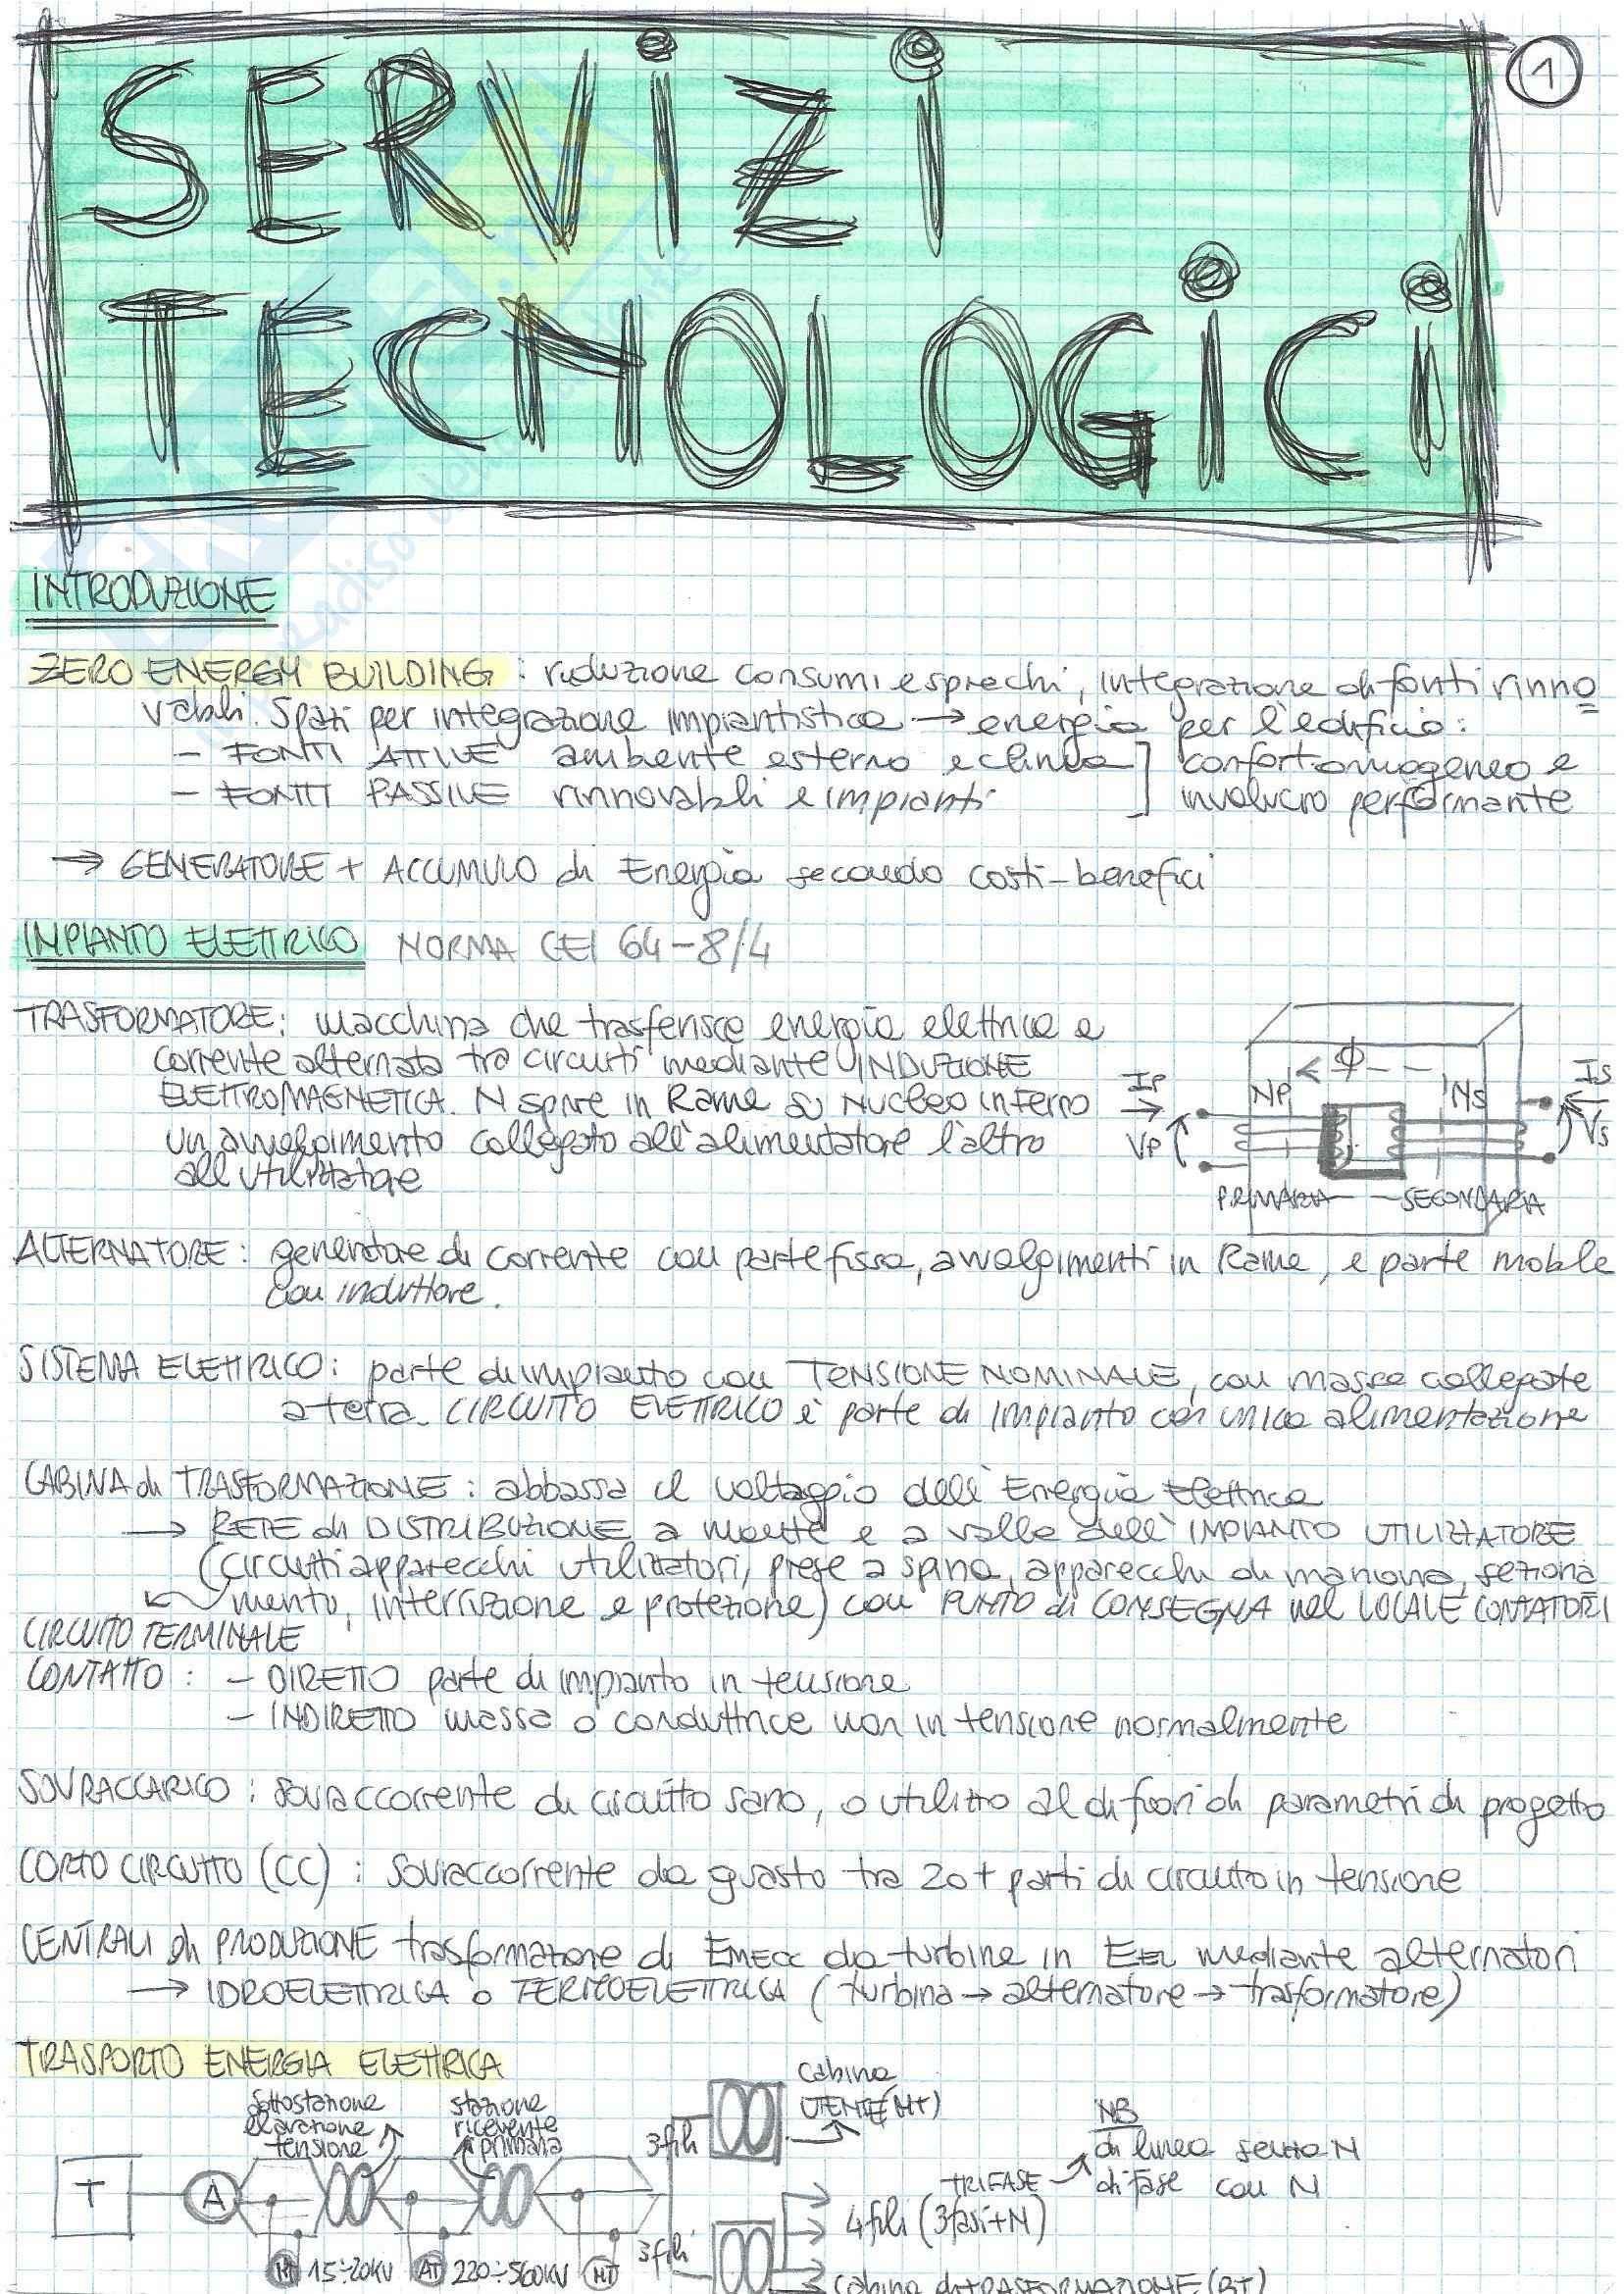 1
SERVIZI
TECNOLOGICI
INTRODUZIONE
ZERO ENERGY BUILDING : riduzione consumi e sprechi, integrazione di fonti rinno
vabili. Spazi per integrazione impiantistica → energia per l'edificio:
- FONTI ATTIVE ambiente esterno e clima ] comfort omogeneo e
- FONTI PASSIVE rinnovabili e impianti ] involucro performante
→ GENERATORE + ACCUMULO di Energia secondo costi-benefici
IMPIANTO ELETTRICO NORMA CEI 64-8/4
TRASFORMATORE: macchina che trasferisce energia elettrica a
corrente alternata tra circuiti mediante INDUZIONE
ELETTROMAGNETICA. N spire in Rame su Nucleo in ferro
un avvolgimento collegato all'alimentatore l'altro
all'utilizzatore
IP VP NP Φ NS IS VS
PRIMARIA SECONDARIA
ALTERNATORE: generatore di corrente con parte fissa, avvolgimenti in Rame, e parte mobile
con induttore.
SISTEMA ELETTRICO: parte di impianto con TENSIONE NOMINALE, con masse collegate
a terra. CIRCUITO ELETTRICO è parte di impianto con unica alimentazione
CABINA di TRASFORMAZIONE: abbassa il voltaggio dell'Energia Elettrica
→ RETE di DISTRIBUZIONE a monte e a valle dell'IMPIANTO UTILIZZATORE
(circuiti apparecchi utilizzatori, prese a spina, apparecchi di manovra, seziona
mento, interruzione e protezione) con PUNTO di CONSEGNA nel LOCALE CONTATORI
CIRCUITO TERMINALE
CONTATTO: - DIRETTO parte di impianto in tensione
- INDIRETTO massa o conduttrice non in tensione normalmente
SOVRACCARICO: sovraccorrente di circuito sano, o utilizzo al di fuori di parametri di progetto
CORTO CIRCUITO (CC): Sovraccorrente da guasto tra 2 o + parti di circuito in tensione
CENTRALI di PRODUZIONE trasformazione di EMECC da turbine in EEL mediante alternatori
→ IDROELETTRICA o TERMOELETTRICA (turbina → alternatore → trasformatore)
TRASPORTO ENERGIA ELETTRICA
sottostazione
elevazione
tensione
stazione
ricevente
primaria
3 fili
cabina
UTENTE (MT)
NB
di linea senza N
di fase con N
TRIFASE
T
A
4 fili (3fasi+N)
3 fili
MT 15÷20KV AT 220÷560KV MT
cabina di TRASFORMAZIONE (BT)